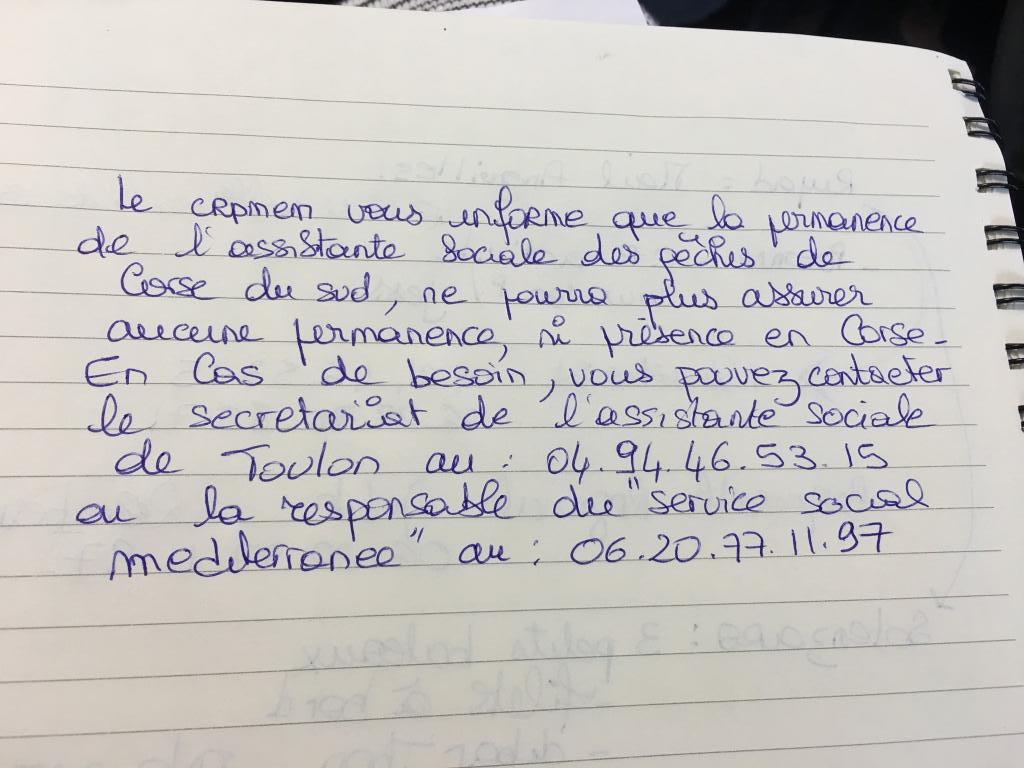 Le CRPMEM vous informe que la permanence
de l'assistante sociale des pêches de
Corse du sud, ne pourra plus assurer
aucune permanence, ni présence en Corse.
En Cas de besoin, vous pouvez contacter
le secretariat de l'assistante sociale
de Toulon au : 04.94.46.53.15
ou la responsable du "service social
mediterranee" au : 06.20.77.11.97
Solenzara : 3 petits bateaux